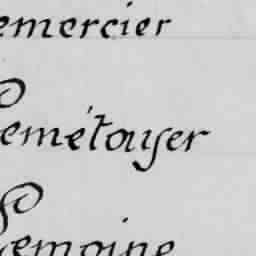 emercier
Lemétayer
Lemoine